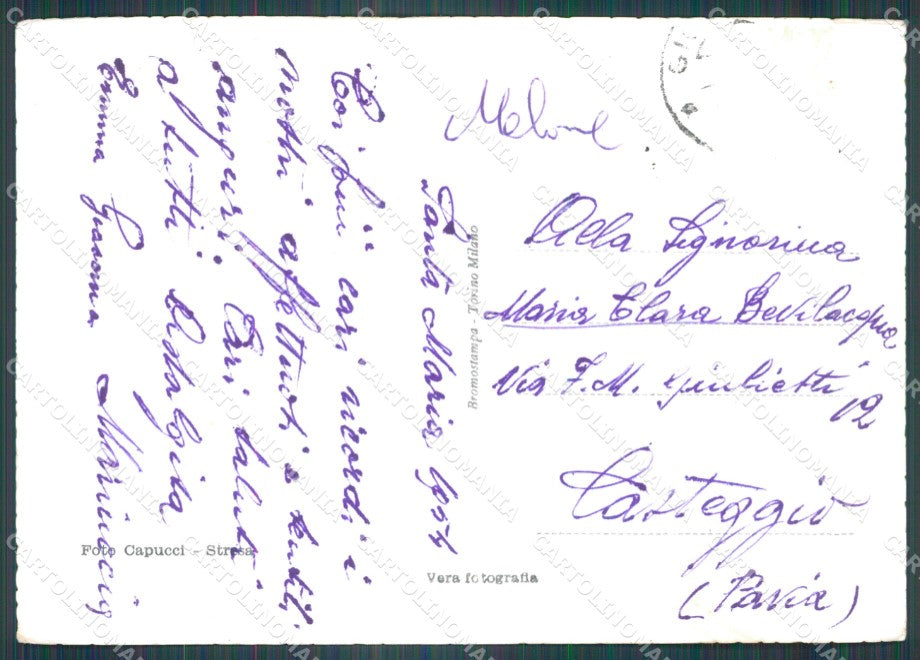 Santa Maria 1954
Coi fini cari ricordi i
nostri affettuosi e
auguri. Cari saluti
a tutti
Emma
Alla Signorina
Maria Clara Bevilacqua
Via F. M. Giulietti 12
Casteggio
(Pavia)
Bromostampa - Torino Milano
Foto Capucci - Stresa
Vera fotografia
CARTOLINOMANIA